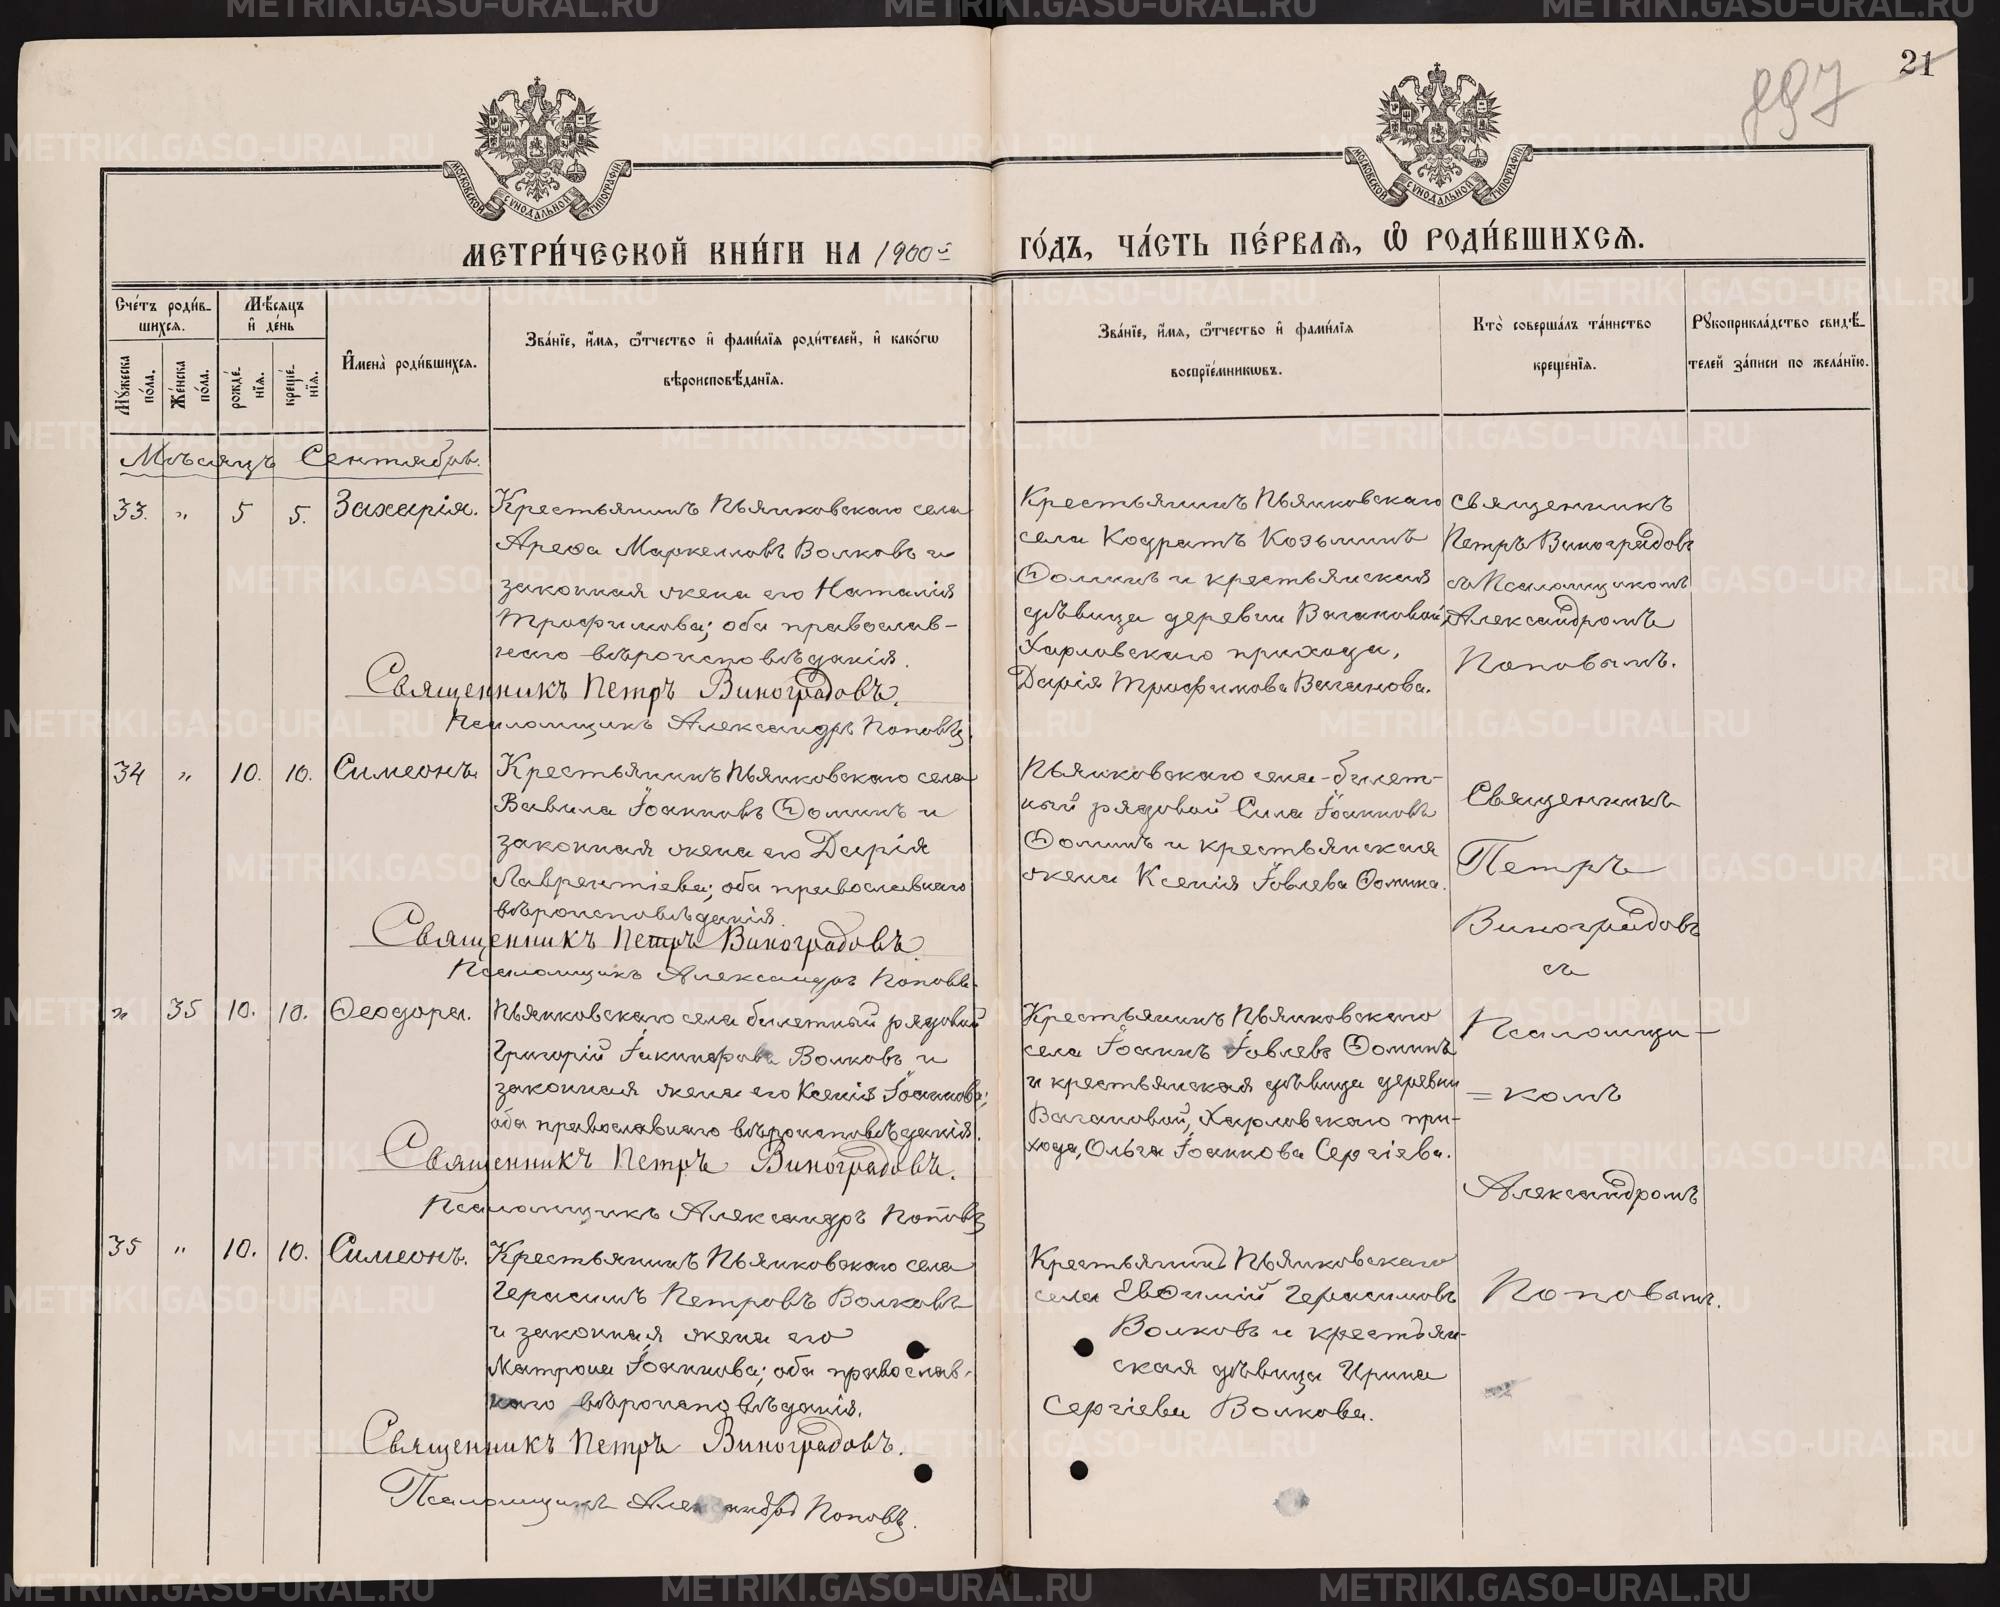 21
897
МОСКОВСКОЙ СУНОДАЛЬНОЙ ТИПОГРАФІИ
МОСКОВСКОЙ СУНОДАЛЬНОЙ ТИПОГРАФІИ
МЕТРИ́ЧЕСКОЙ КНИ́ГИ НА 1900й
ГО́ДЪ, ЧА́СТЬ ПЕ́РВАѦ, Ѽ РОДИ́ВШИХСѦ.
Сче́тъ роди́в-
шихсѧ.
Мꙋ́жеска по́ла.
Же́нска по́ла.
Мѣ́сѧцъ
и҆ де́нь
рожде́нїѧ.
креще́нїѧ.
И҆мена̀ роди́вшихсѧ.
Зва́нїе, и҆́мѧ, ѻ҆́тчество и҆ фами́лїѧ роди́телей, и҆ како́гѡ
вѣроисповѣ́данїѧ.
Зва́нїе, и҆́мѧ, ѻ҆́тчество и҆ фами́лїѧ
воспрїе́мникѡвъ.
Кто̀ соверша́лъ та́инство
креще́нїѧ.
Рꙋкоприкла́дство свидѣ́-
телей за́писи по жела́нїю.
Мѣсяцъ Сентябрь.
33. „ 5 5. Захарія.
Крестьянинъ Пьянковскаго села
Арефа Маркелловъ Волковъ и
законная жена его Наталія
Трофимова; оба православ-
наго вѣроисповѣданія.
Священникъ Петръ Виноградовъ.
Псаломщикъ Александръ Поповъ.
Крестьянинъ Пьянковскаго
села Кодратъ Козьминъ
Ѳоминъ и крестьянская
дѣвица деревни Вагановой,
Харловскаго прихода,
Дарія Трофимова Ваганова.
Священникъ
Петръ Виноградовъ
съ Псаломщикомъ
Александромъ
Поповымъ.
34 „ 10. 10. Симеонъ.
Крестьянинъ Пьянковскаго села
Вавила Іоанновъ Ѳоминъ и
законная жена его Дарія
Лаврентіева; оба православнаго
вѣроисповѣданія.
Священникъ Петръ Виноградовъ.
Псаломщикъ Александръ Поповъ.
Пьянковскаго села-билет-
ный рядовой Сила Іоанновъ
Ѳоминъ и крестьянская
жена Ксенія Іовлева Ѳомина.
Священникъ
Петръ
Виноградовъ
съ
Псаломщи-
=комъ
Александромъ
Поповымъ.
„ 35 10. 10. Ѳеодора.
Пьянковскаго села билетный рядовой
Григорій Іакинфовъ Волковъ и
законная жена его Ксенія Іоаннова;
оба православнаго вѣроисповѣданія.
Священникъ Петръ Виноградовъ.
Псаломщикъ Александръ Поповъ
Крестьянинъ Пьянковскаго
села Іоаннъ Іовлевъ Ѳоминъ
и крестьянская дѣвица деревни
Вагановой, Харловскаго при-
хода, Ольга Іоаннова Сергіева.
35 „ 10. 10. Симеонъ.
Крестьянинъ Пьянковскаго села
Герасимъ Петровъ Волковъ
и законная жена его
Матрона Іоаннова; оба православ-
наго вѣроисповѣданія.
Священникъ Петръ Виноградовъ.
Псаломщикъ Александръ Поповъ.
Крестьянинъ Пьянковскаго
села Евѳимій Герасимовъ
Волковъ и крестьян-
ская дѣвица Ирина
Сергіева Волкова.
METRIKI.GASO-URAL.RU